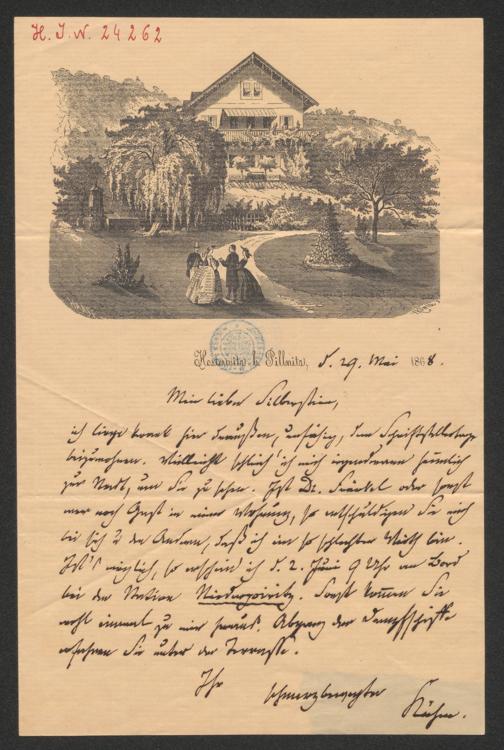 H. I. N. 24262
Hosterwitz b. Pillnitz, d. 29. Mai 1868.
Mein lieber Silberstein,
ich liege krank hier draußen, unfähig, dem Schriftstellertage
beizuwohnen. Vielleicht schleich' ich mich irgendwann heimlich
zur Stadt, um Sie zu sehen. Ist Dr. Fränkel oder sonst
wer noch Gast in meiner Wohnung, so entschuldigen Sie mich
bei sich u den Andern, daß ich ein so schlechter Wirth bin.
Ist's möglich, so erschein ich d. 2. Juni 9 Uhr am Bord
bei der Station Niederpoyritz. Sonst kommen Sie
wohl einmal zu mir heraus. Abgang der Dampfschiffe
erfahren Sie unter der Terrasse.
Ihr
schmerzbewegter
Kühne.